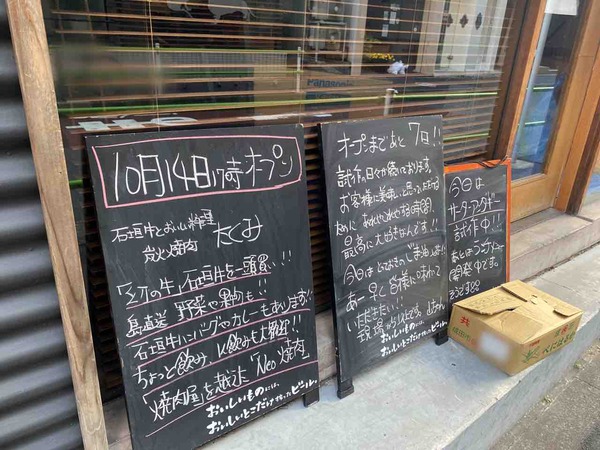 10月14日17時オープン
石垣牛とおいしい料理
炭火焼肉 たくみ
幻の牛「石垣牛を一頭買い!!
島直送 野菜や果物も!!
石垣牛ハンバーグやカレーもあります!!
ちょっと飲み、昼飲みも大歓迎!!
「焼肉屋」を越えた「Neo焼肉」
おいしいものには、
おいしいとこだけ搾ったビール。
オープンまであと7日!!
試作の日々が続いております。
お客様に美味しいと思って頂ける
ために
最高に大好きなんです!!
今日は
あー早く皆様に味わって
いただきたい!!
おいしいものには、
おいしいとこだけ搾ったビール。
今日は
サーターアンダギー
試作中!!
あとは
開発中です。
Panasonic